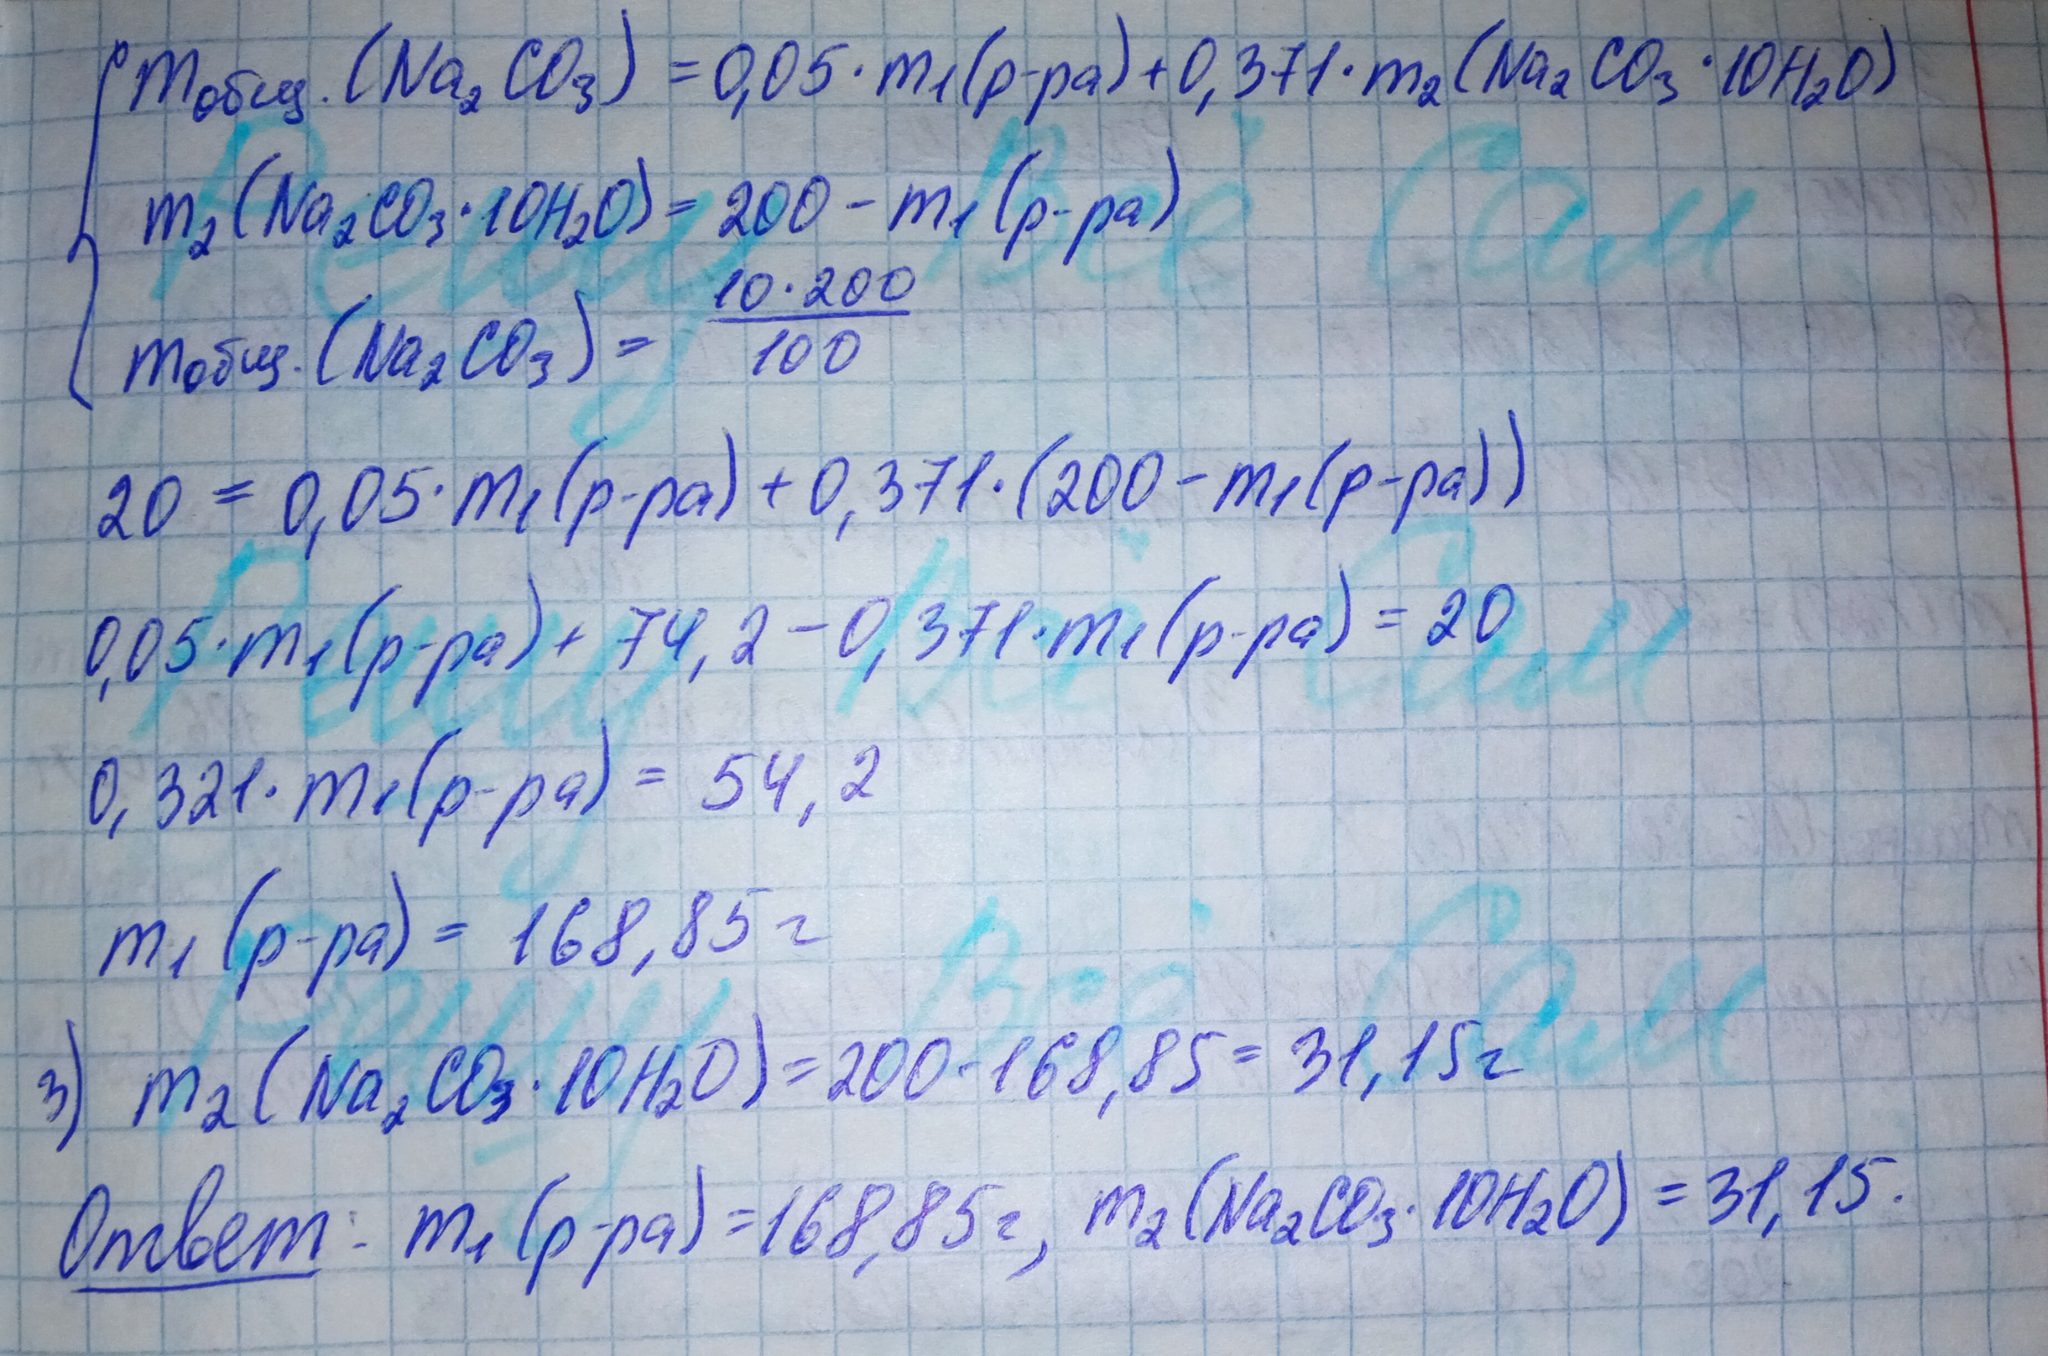 mобщ.(Na₂CO₃) = 0,05·m₁(р-ра)+0,371·m₂(Na₂CO₃·10H₂O)
m₂(Na₂CO₃·10H₂O) = 200 - m₁(р-ра)
mобщ.(Na₂CO₃) = 10·200/100
20 = 0,05·m₁(р-ра)+0,371·(200-m₁(р-ра))
0,05·m₁(р-ра)+74,2-0,371·m₁(р-ра)=20
0,321·m₁(р-ра) = 54,2
m₁(р-ра) = 168,85 г
3) m₂(Na₂CO₃·10H₂O)=200-168,85=31,15 г
Ответ: m₁(р-ра)=168,85 г, m₂(Na₂CO₃·10H₂O)=31,15.
Решу Всё Сам
Решу Всё Сам
Решу Всё Сам